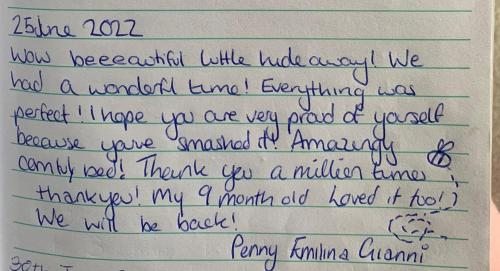 25 June 2022
Wow beeeautiful little hideaway! We
had a wonderful time! Everything was
perfect! I hope you are very proud of yourself
because youve smashed it! Amazingy
comfy bed! Thank you a million times
thankyou! My 9 month old loved it too!
We will be back!
Penny Emilina Gianni
30th